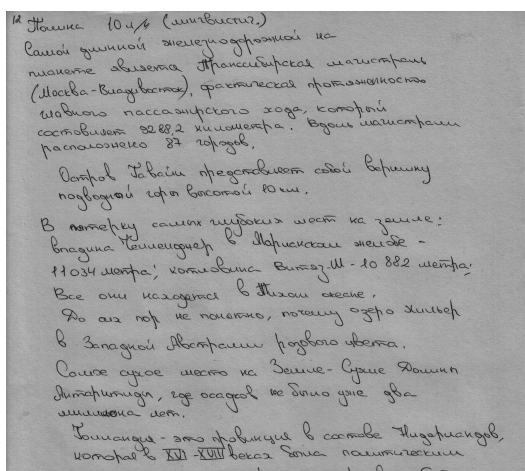 Полина 10 л/к (лингвистич.)
Самой длинной железнодорожной на
планете является Транссибирская магистраль
(Москва-Владивосток), фактическая протяженность
главного пассажирского хода, который
составляет 9288,2 километра. Вдоль магистрали
расположено 87 городов.
Остров Гавайи представляет собой вершину
подводной горы высотой 10 км.
В пятерку самых глубоких мест на земле:
впадина Челленджер в Марианском желобе -
11034 метра; котловина Витяз-III - 10 882 метра;
Все они находятся в Тихом океане.
До сих пор не понятно, почему озеро Хильер
в Западной Австралии розового цвета.
Самое сухое место на Земле - Сухие Долины
Антарктиды, где осадков не было уже два
миллиона лет.
Голландия - это провинция в составе Нидерландов,
которая в XVI - XVIII веках была политическим